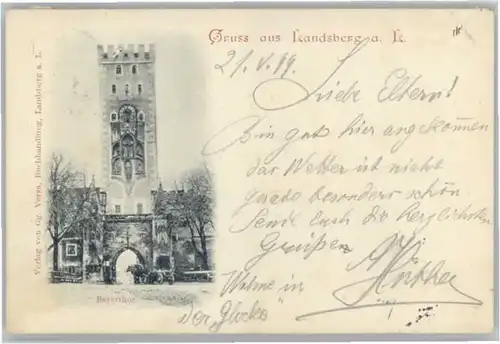 Gruss aus Landsberg a. L.
21. V. 99.
Liebe Eltern!
Bin gut hier angekommen
das Wetter ist nicht
gerade besonders schön.
Send Euch die herzlichsten
Grüßen
Wohne in
"Der Glocke"
Bayerthor
Verlag von Gg. Verza, Buchhandlung, Landsberg a. L.